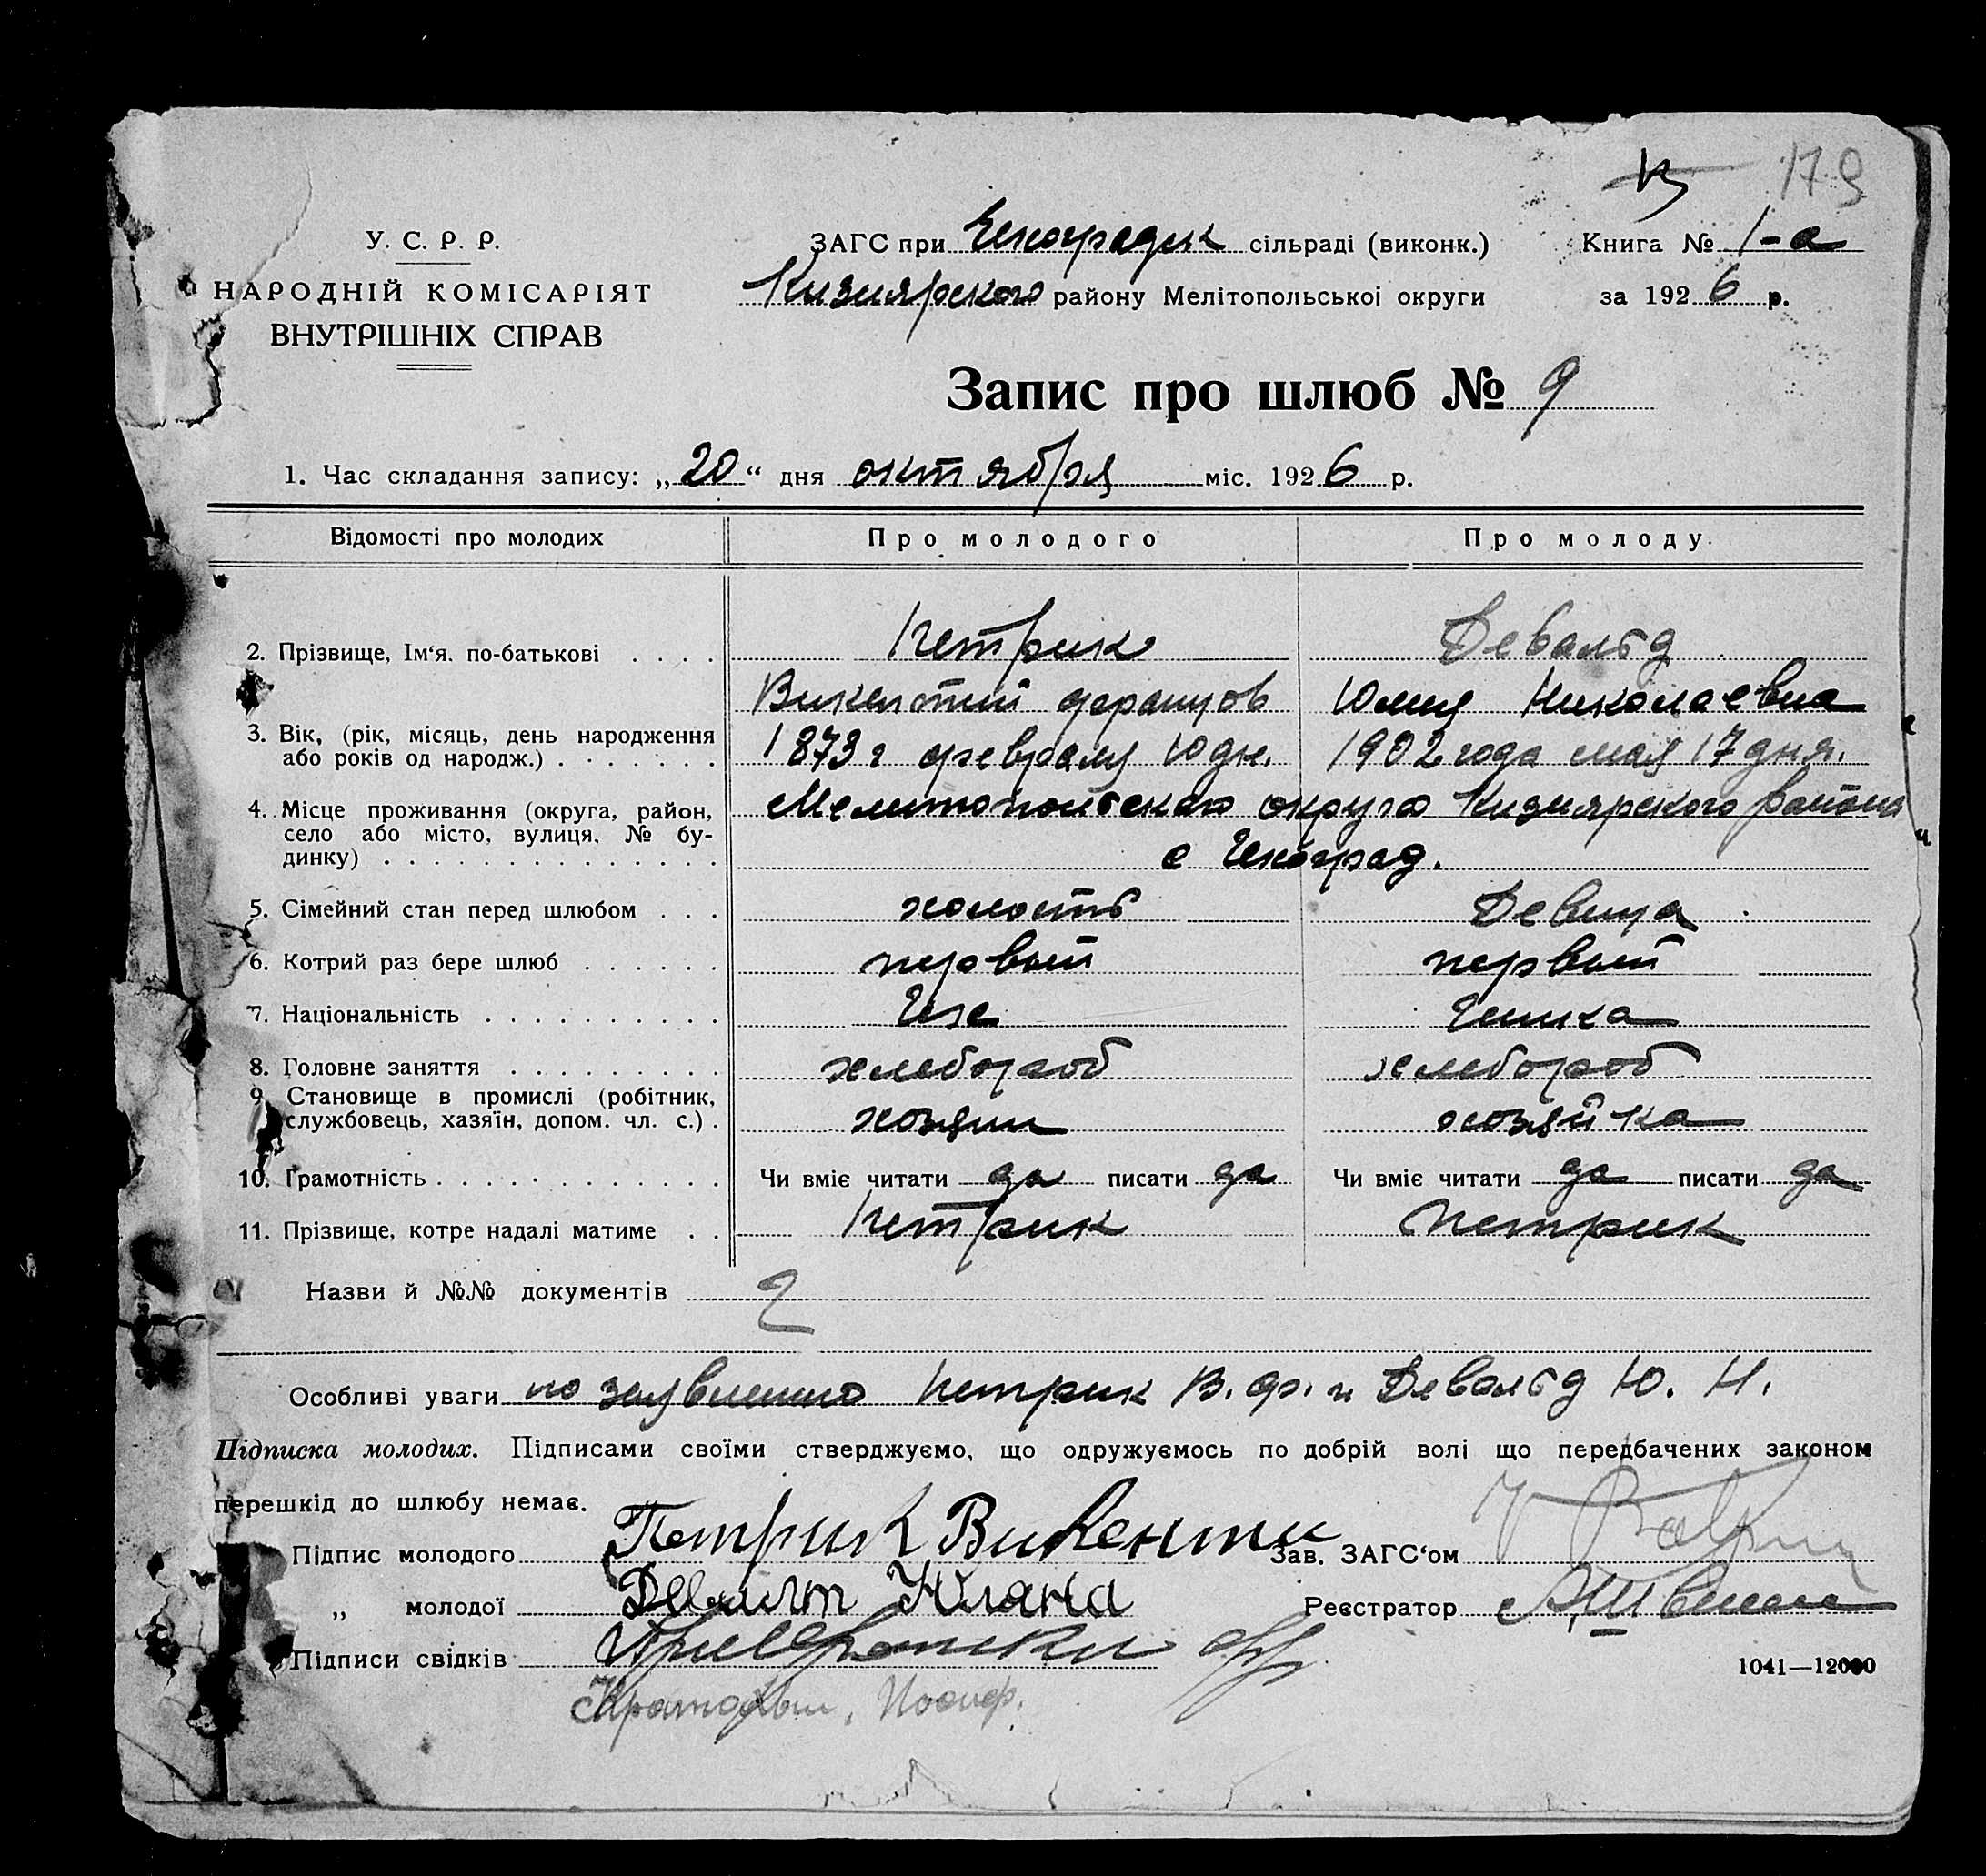 179
У. С. Р. Р.
НАРОДНІЙ КОМІСАРІЯТ
ВНУТРІШНІХ СПРАВ
ЗАГС при Чехоградск сільраді (виконк.)
Книга № 1-а
Кизиярского району Мелітопольської округи
за 1926 р.
Запис про шлюб № 9
1. Час складання запису: „20“ дня октября міс. 1926 р.
Відомості про молодих Про молодого Про молоду
2. Прізвище, Ім'я, по-батькові Петрик Девальд
Викентий Францов Юлия Николаевна
3. Вік, (рік, місяць, день народження або років од народж.) 1873 г февраля 10 дн. 1902 года мая 17 дня.
4. Місце проживання (округа, район, село або місто, вулиця, № будинку) Мелитопольского округа Кизиярского района
с Чехоград.
5. Сімейний стан перед шлюбом холостъ Девица
6. Котрий раз бере шлюб первый первый
7. Національність Чех Чешка
8. Головне заняття хлебороб хлебороб
9. Становище в промислі (робітник, службовець, хазяїн, допом. чл. с.) хозяин хозяйка
10. Грамотність Чи вміє читати да писати да Чи вміє читати да писати да
11. Прізвище, котре надалі матиме Петрик Петрик
Назви й №№ документів
Особливі уваги по заявлению Петрик В. Ф. и Девальд Ю. Н.
Підписка молодих. Підписами своїми стверджуємо, що одружуємось по добрій волі що передбачених законом
перешкід до шлюбу немає.
Підпис молодого Петрик Викенти Зав. ЗАГС‘ом
„ молодої Реєстратор
Підписи свідків
Иосиф.
1041—12000